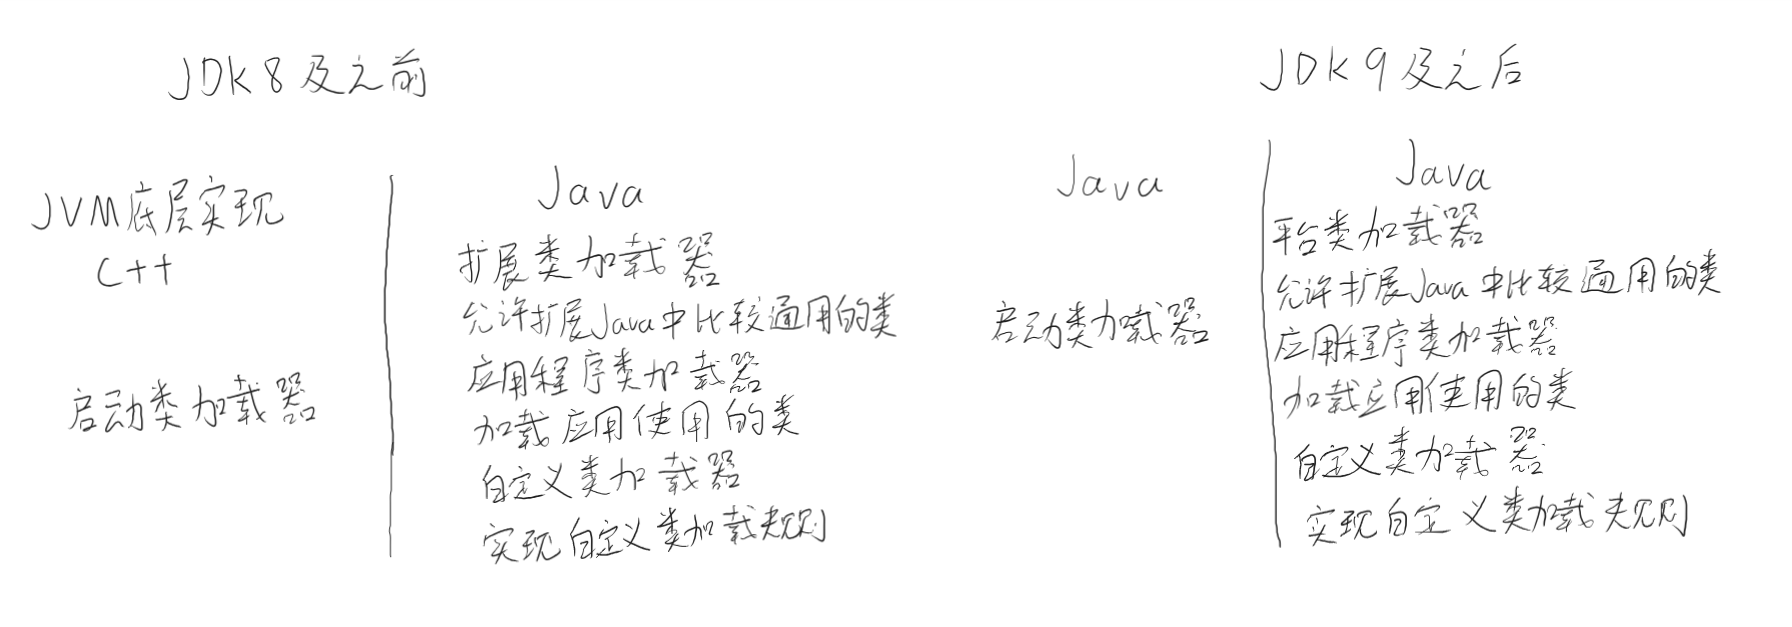 JDK8及之前
JVM底层实现
C++
启动类加载器
Java
扩展类加载器
允许扩展Java中比较通用的类
应用程序类加载器
加载应用使用的类
自定义类加载器
实现自定义类加载规则
JDK9及之后
Java
启动类加载器
Java
平台类加载器
允许扩展Java中比较通用的类
应用程序类加载器
加载应用使用的类
自定义类加载器
实现自定义类加载规则